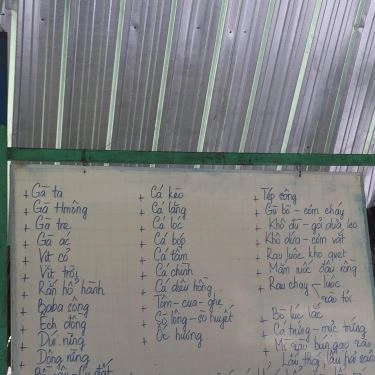 + Gà ta
+ Gà Hmông
+ Gà tre
+ Gà ác
+ Vịt cỏ
+ Vịt trời
+ Rắn hổ hành
+ Baba sông
+ Ếch đồng
+ Dúi nừng
+ Dông nừng
+ Cá kèo
+ Cá lăng
+ Cá lóc
+ Cá bóp
+ Cá tầm
+ Cá chình
+ Cá diêu hồng
+ Tôm - cua - ghẹ
+ Sò lông - sò huyết
+ Ốc hương
Tép sông
+ Gù bò - cơm cháy
+ Khô đù - gỏi dưa leo
+ Khô dứa - cơm vắt
+ Rau luộc kho quẹt
+ Mắm ruốc đậu rồng
+ Rau chay luộc
xào tỏi
+ Bò lúc lắc
+ Cá trứng - mực trứng
+ Mì xào
Lẩu thái, lẩu hải sản